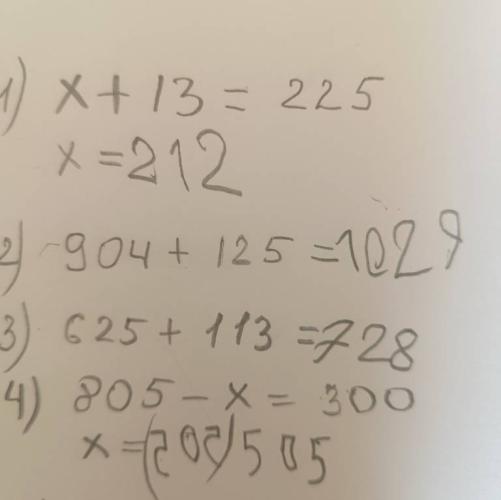 1) x + 13 = 225
x = 212
2) 904 + 125 = 1029
3) 625 + 113 = 728
4) 805 - x = 300
x = (505) 505